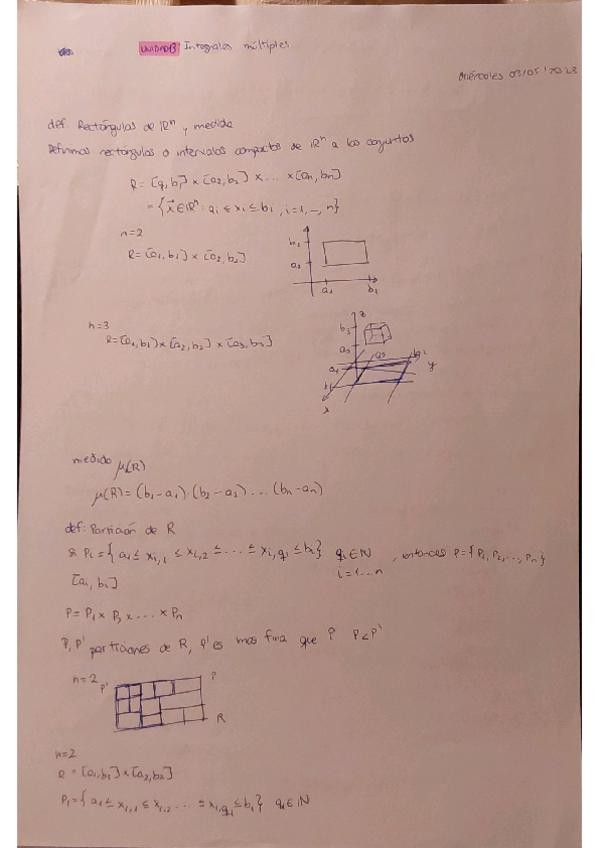 UNIDAD 3 Integrales múltiples
miércoles 03/05/2023
def. Rectángulos de ℝⁿ y medida
Definimos rectángulos o intervalos compactos de ℝⁿ a los conjuntos
R = [a₁, b₁] × [a₂, b₂] × ... × [aₙ, bₙ]
= {x⃗ ∈ ℝⁿ : aᵢ ≤ xᵢ ≤ bᵢ, i=1, –, n}
n=2
R = [a₁, b₁] × [a₂, b₂]
b₂
a₂
a₁ b₁
n=3
R = [a₁, b₁] × [a₂, b₂] × [a₃, b₃]
z
b₃
a₃
a₂ b₂
a₁
y
b₁
x
medida μ(R)
μ(R) = (b₁-a₁)·(b₂-a₂) ... (bₙ-aₙ)
def: Partición de R
Pᵢ = {aᵢ ≤ xᵢ,₁ ≤ xᵢ,₂ ≤ ... ≤ xᵢ,qᵢ ≤ bᵢ} qᵢ ∈ ℕ, entonces P = {P₁, P₂, ..., Pₙ}
i=1...n
[aᵢ, bᵢ]
P = P₁ × P₂ × ... × Pₙ
P, P' particiones de R, P' es mas fina que P P<P'
n=2 P' P
R
n=2
R = [a₁, b₁] × [a₂, b₂]
P₁ = {a₁ ≤ x₁,₁ ≤ x₁,₂ ... = x₁,q₁ ≤ b₁} q₁ ∈ ℕ